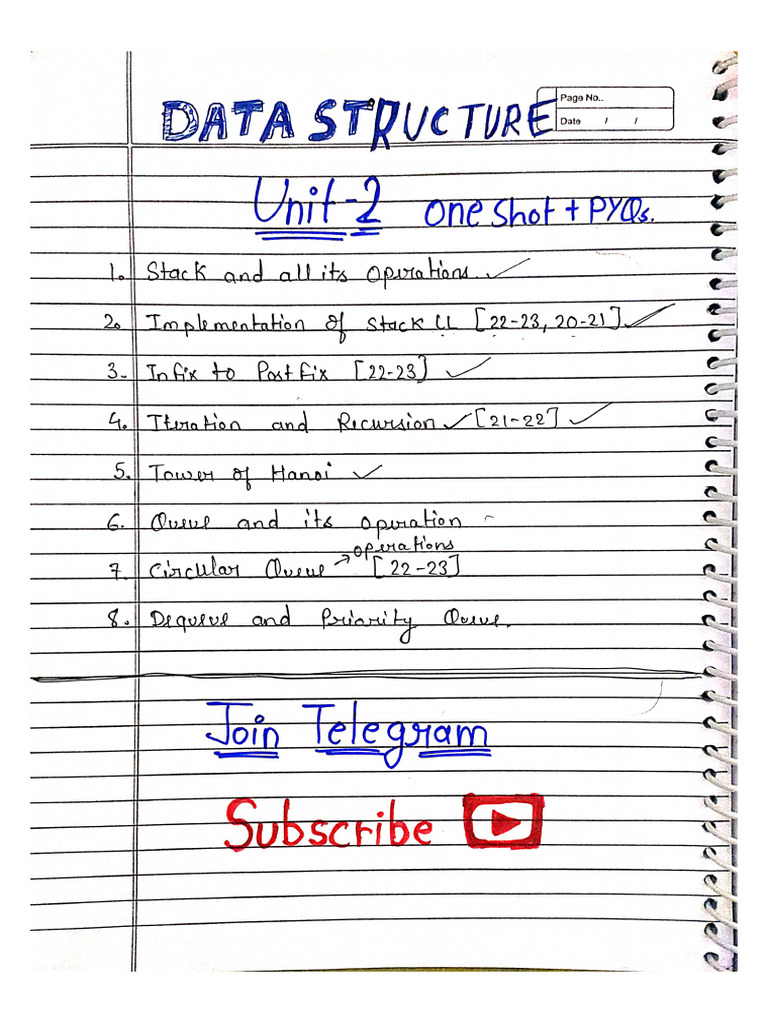 DATA STRUCTURE
Page No..
Date / /
Unit-2 One Shot + PYQs.
1. Stack and all its Operations.
2. Implementation of Stack LL [22-23, 20-21]
3. Infix to Postfix [22-23]
4. Iteration and Recursion [21-22]
5. Tower of Hanoi
6. Queue and its operation
operations
7. Circular Queue → [22-23]
8. Dequeue and Priority Queue.
Join Telegram
Subscribe